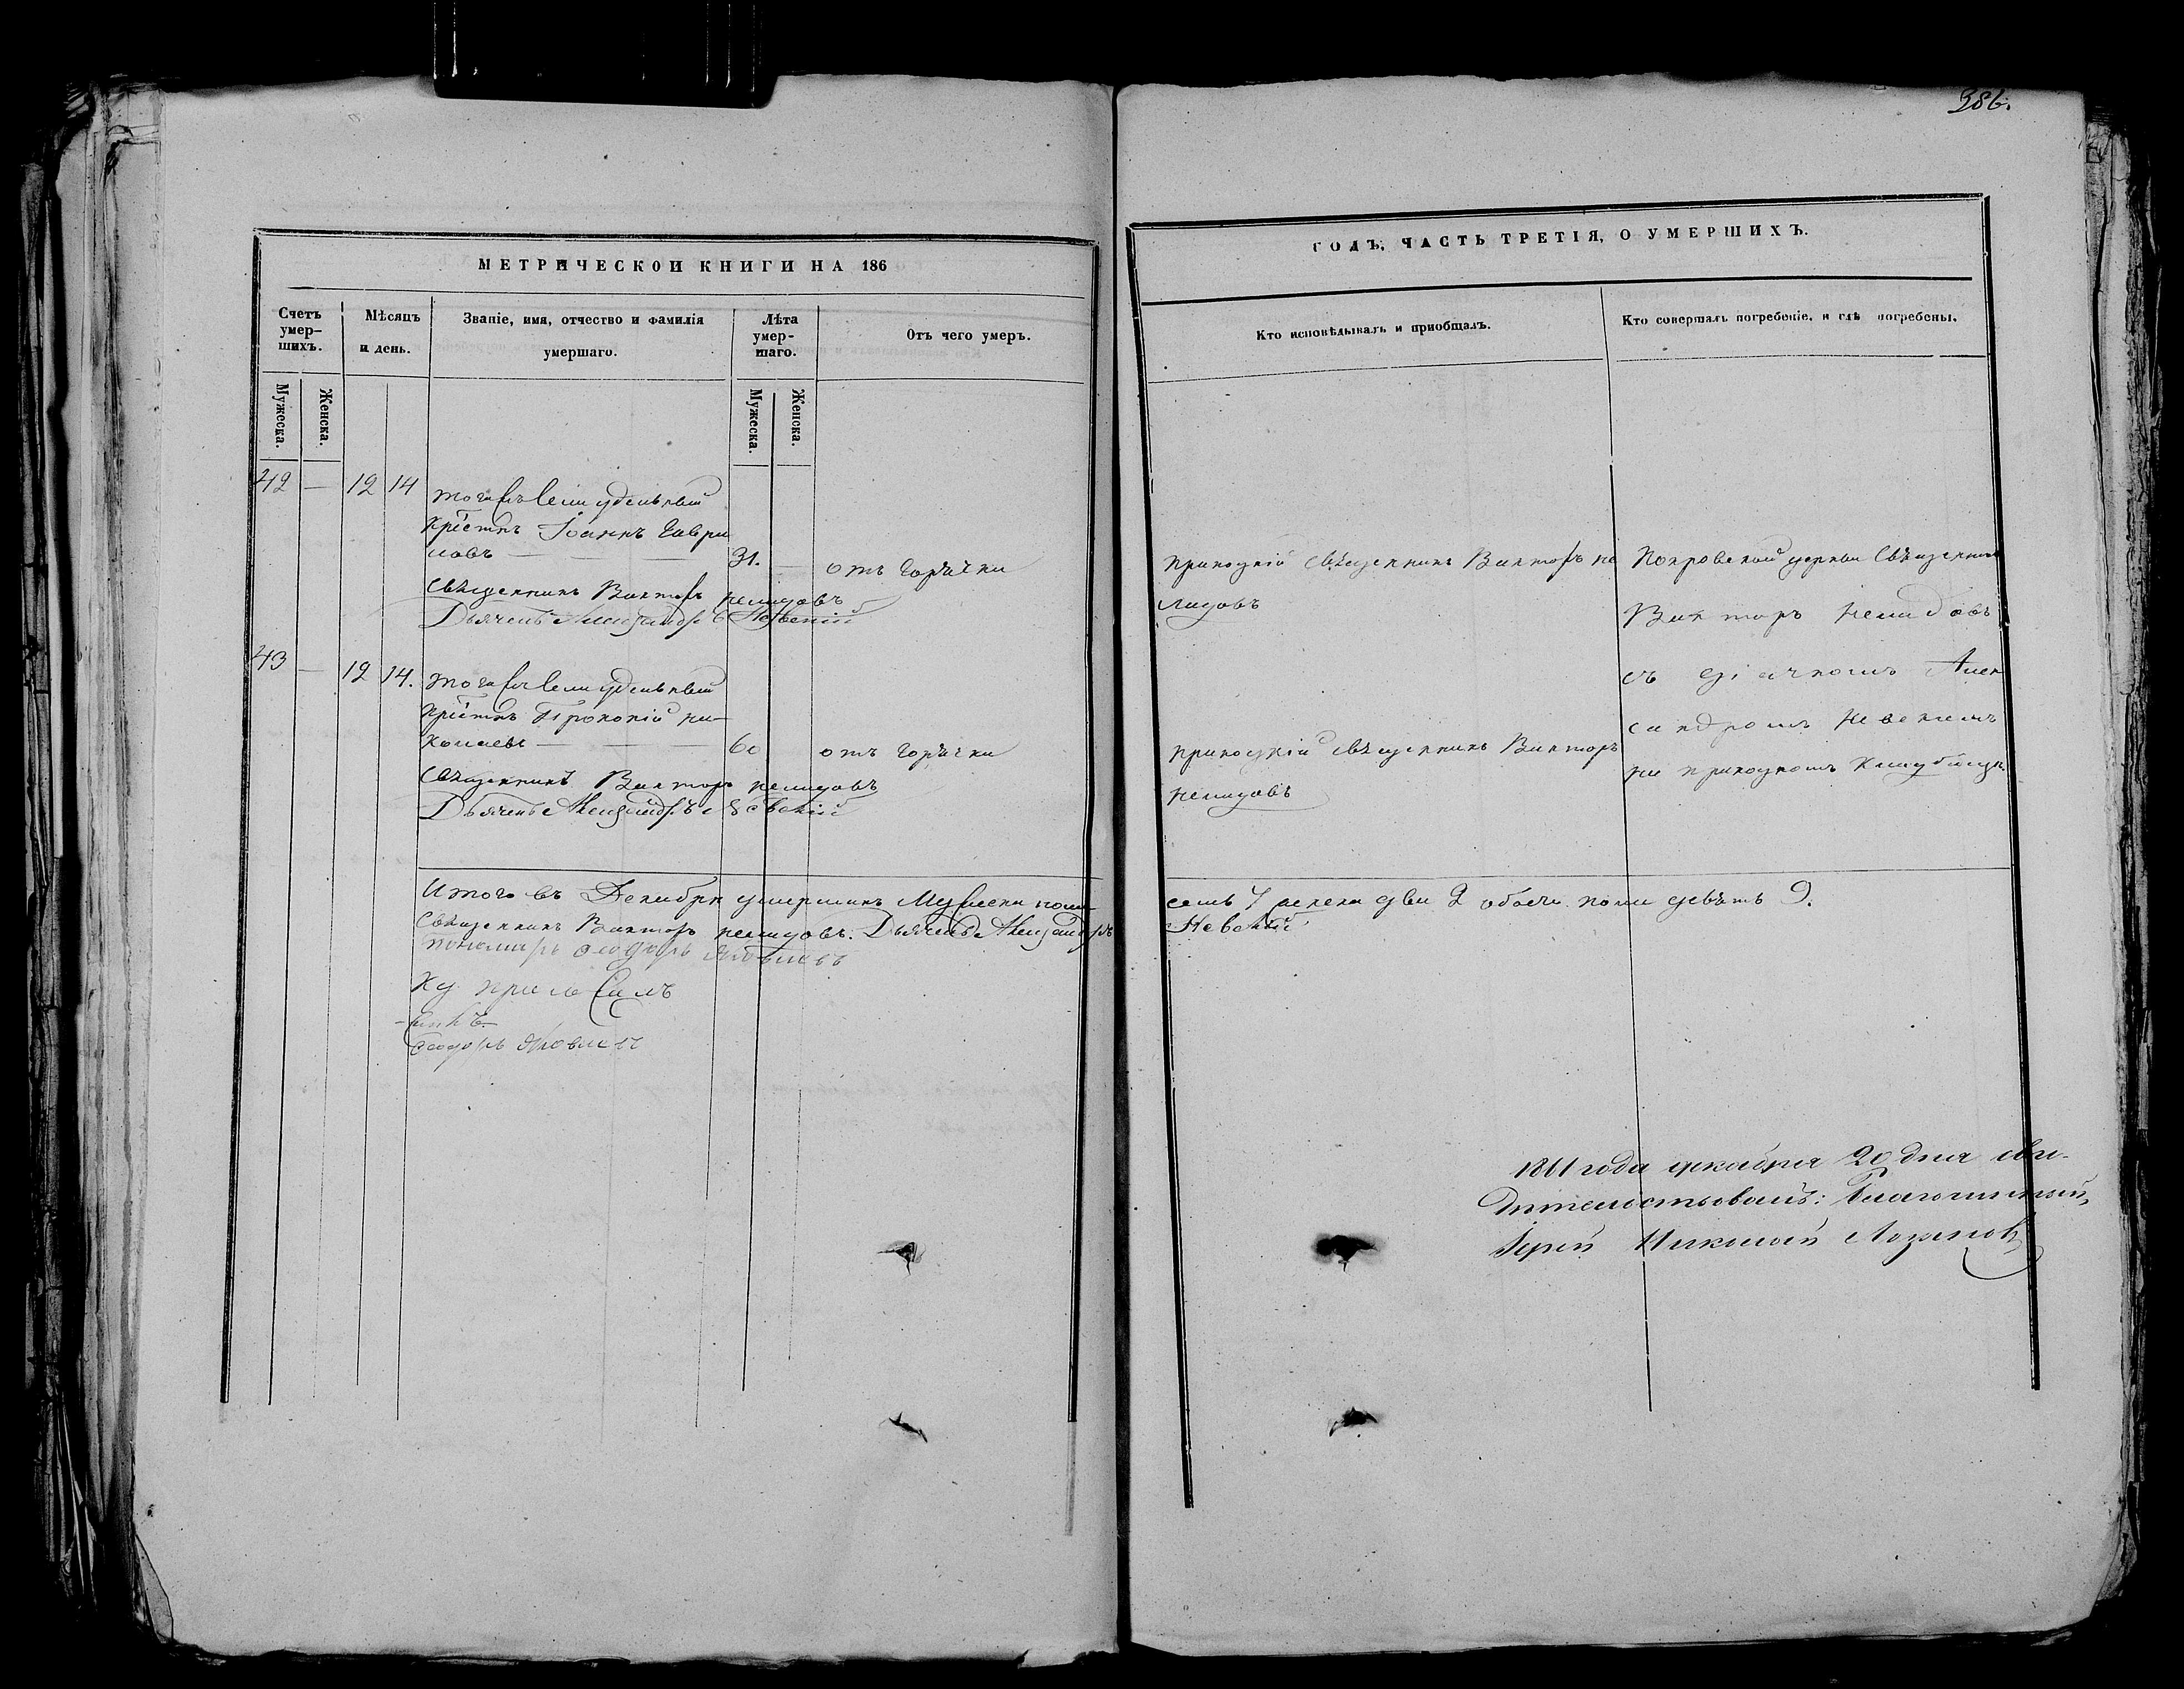 386.
МЕТРИЧЕСКОЙ КНИГИ НА 186
ГОДЪ, ЧАСТЬ ТРЕТІЯ, О УМЕРШИХЪ.
Счетъ умер-
шихъ.
Мужеска.
Женска.
Мѣсяцъ
и день.
Званіе, имя, отчество и фамилія
умершаго.
Лѣта
умер-
шаго.
Мужеска.
Женска.
Отъ чего умеръ.
Кто исповѣдывалъ и пріобщалъ.
Кто совершалъ погребеніе, и гдѣ погребены.
42 — 12 14
тогожъ села удельный
Іоаннъ Гаври
ловъ — 31. — отъ горячки
Священникъ Викторъ Нелидовъ
Дьячекъ Александръ Невскій
приходкій священникъ Викторъ Не
лидовъ
Покровской церкви Священникъ
Викторъ Нелидовъ
съ діачкомъ Алек
сандромъ Невскимъ
на приходкомъ
43 — 12 14.
тогожъ села удельный
Прокопій Ни-
— 60 отъ горячки
Священникъ Викторъ Нелидовъ
Дьячекъ Александръ Невскій
приходкій священникъ Викторъ
Нелидовъ
Итого въ Декабрѣ умершихъ Мужеска пола
семь 7 женска два 2 обоего пола девять 9.
Священникъ Викторъ Нелидовъ. Дьячекъ Александръ
Невскій
пономарь Ѳеодоръ
Ѳеодоръ
1861 года декабря 20 дня сви-
дѣтельствовалъ: Благочинный,
Іерей Николай